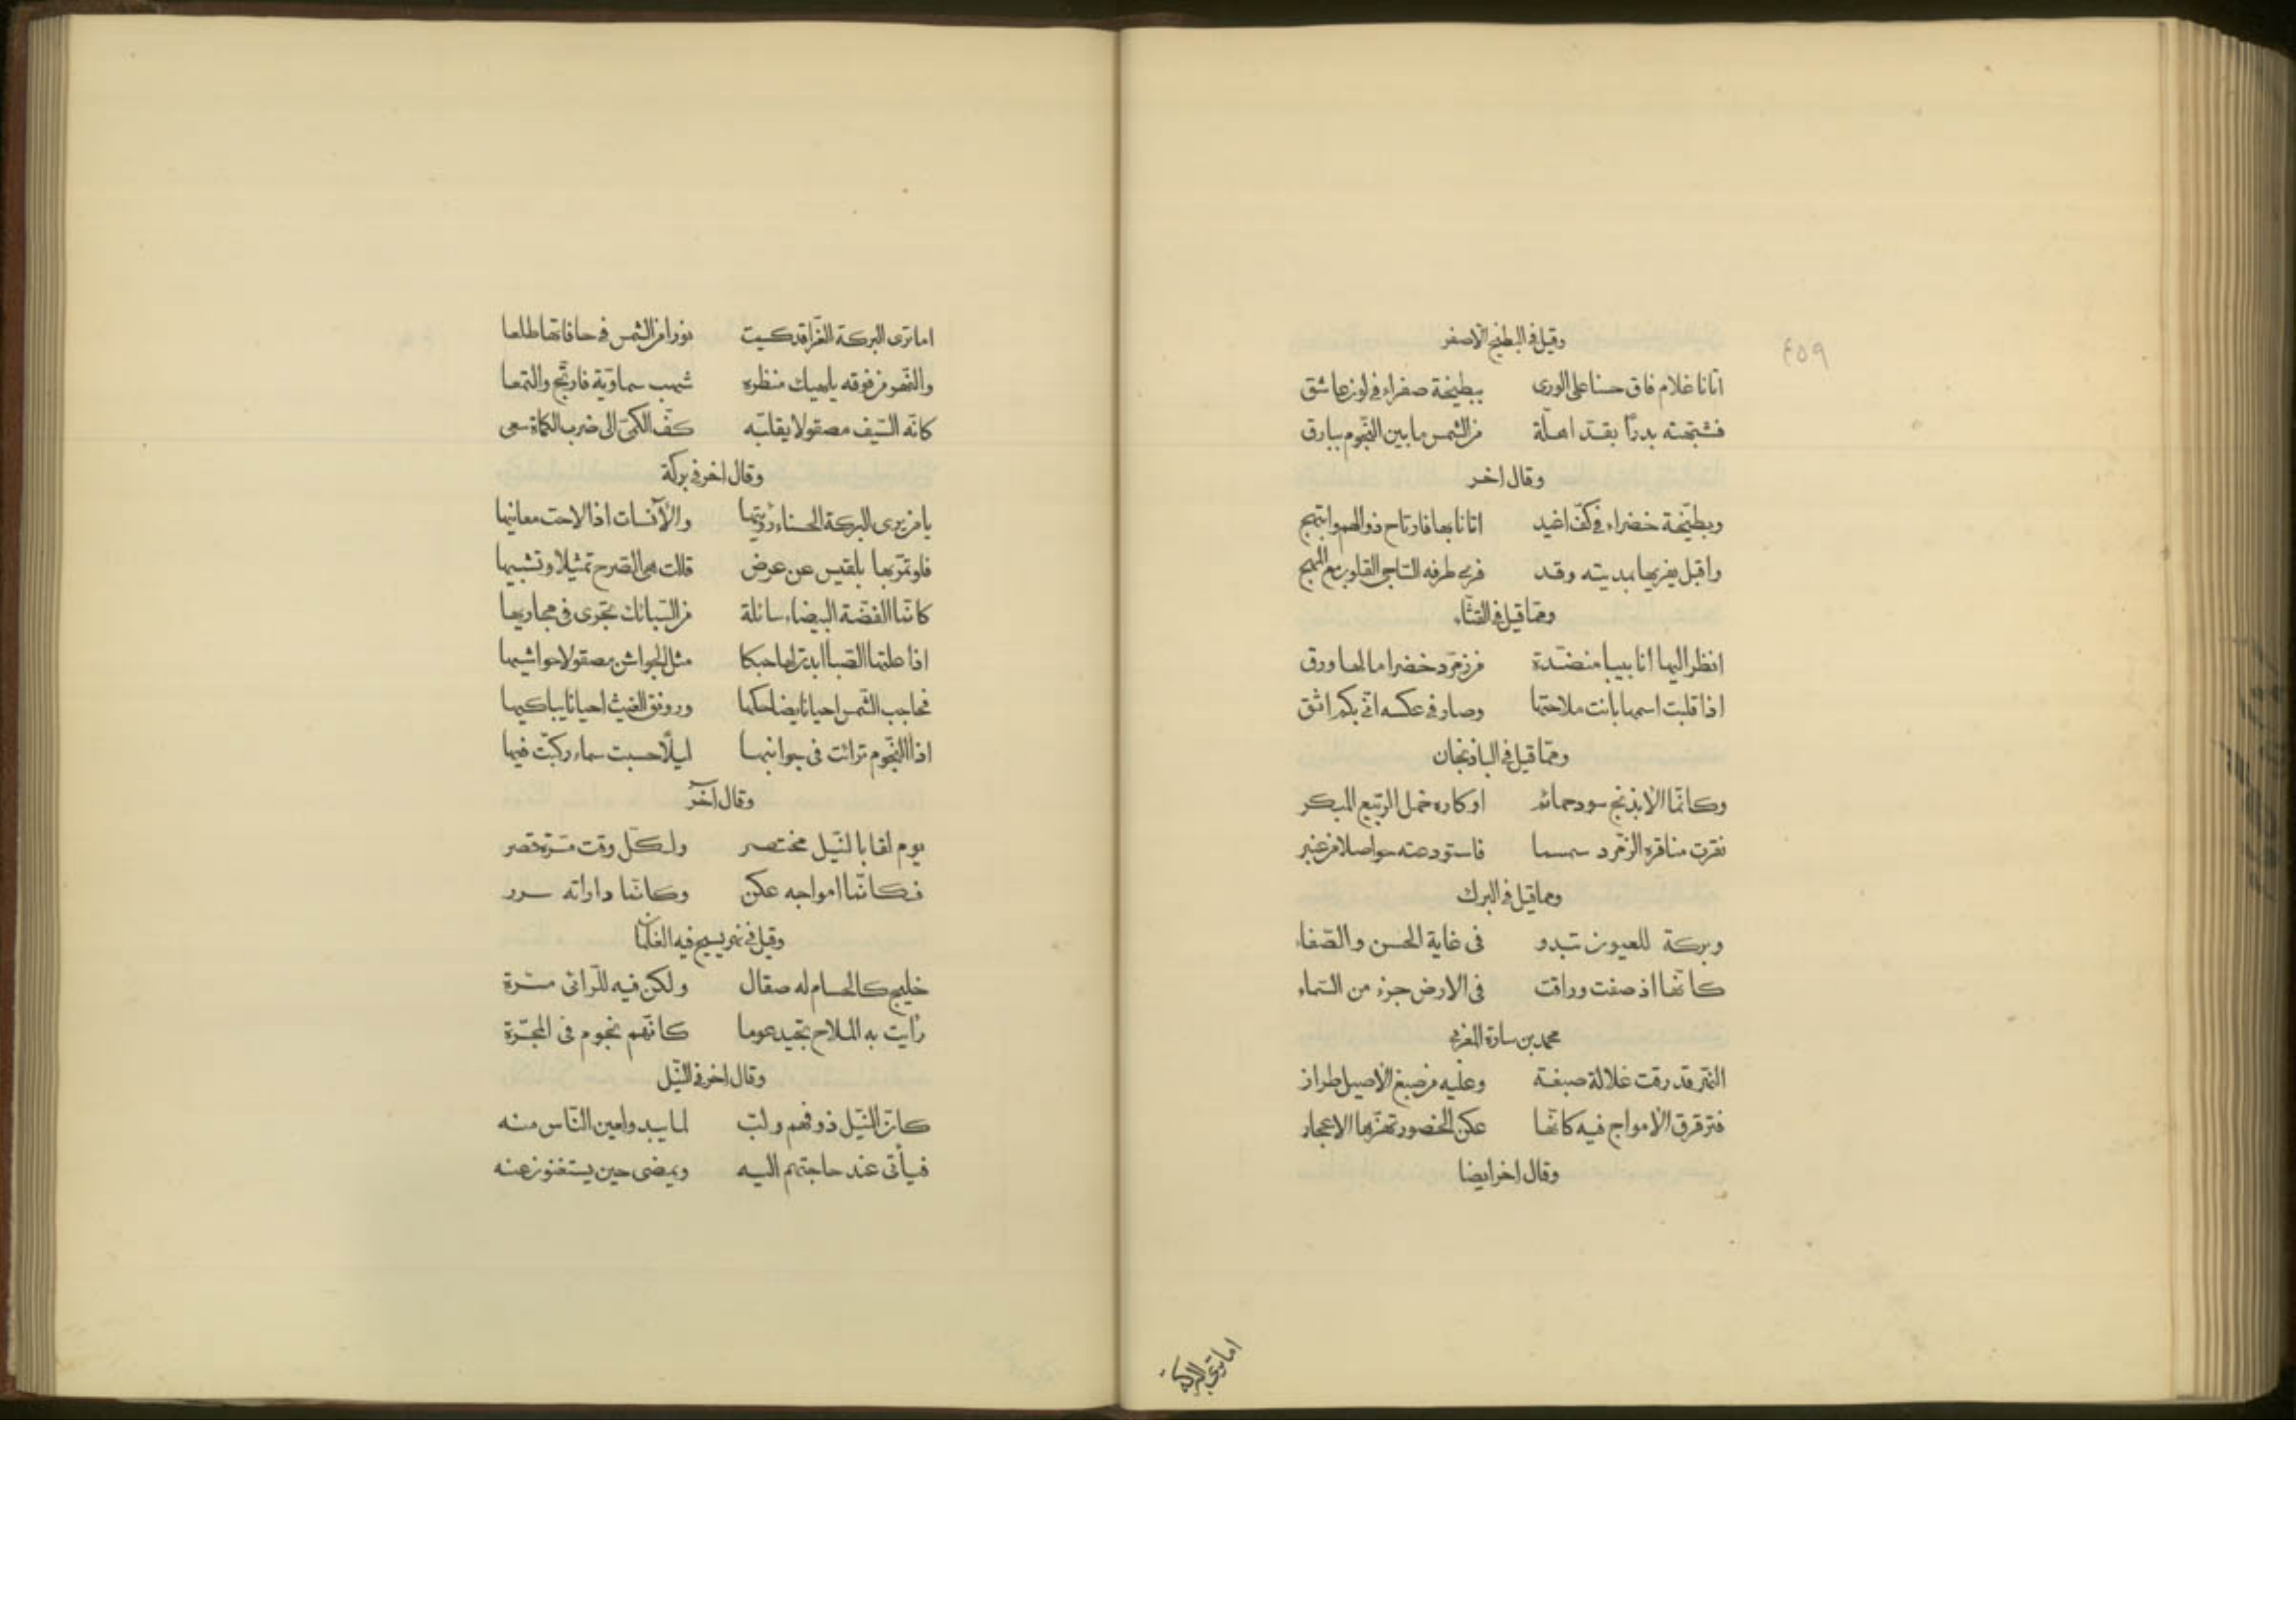 ٤٥٩
وقيل في البطيخ الاصفر
اتانا غلام فاق حسنا على الورى ببطيخة صفراء في لون عاشق
فشبهته بدرًا يقد اهلّة من الشمس ما بين النجوم ببارق
وقال اخر
وبطيخة خضراء في كفّ اغيد اتانا بها فارتاح ذو الهم وابتهج
واقبل يفريها بمديته وقد فرى طرفه الساجى القلوب مع المهج
ومما قيل في القثّاء
انظر اليها انابيبا منضّدة من زمرّد خضرا ما لها ورق
اذا قلبت اسمها بانت ملاحتها وصار في عكسه انّى بكم اثق
وممّا قيل في الباذنجان
وكانّما الابذنج سود حمائم اوكاره خمل الربيع المبكر
نقرت مناقره الزمّرد سمسما فاستودعته حواصلا من عنبر
ومما قيل في البرك
وبركة للعيون تبدو فى غاية الحسن والصّفاء
كانّها اذ صفت وراقت فى الارض جزء من السّماء
محمد بن سارة المغربى
النهر قد رقت غلالة صبغة وعليه من صبغ الاصيل طراز
فترقرق الامواج فيه كانّها عكن الخصور تهزّها الاعجاز
وقال اخر ايضا
اما ترى البركة
اما ترى البركة الغرّا قد كسيت نورا من الشمس في حافاتها طلعا
والنّهر من فوقه يلهيك منظره شهب سماويّة فارتجّ والتمعا
كانّه السّيف مصقولا يقلّبه كفّ الكمىّ الى ضرب الكماة سعى
وقال اخر فى بركة
يا من يرى البركة الحسناء رؤيتها والآنسات اذا لاحت معانيها
فلو تمرّ بها بلقيس عن عرض قالت هى الصّرح تمثيلا وتشبيها
كانّما الفضّة البيضاء سائلة من السّبائك تجرى فى مجاريها
اذا علتها الصّبا ابدت لها حبكا مثل الجواشن مصقولا حواشيها
فحاجب الشّمس احيانا يضاحكها ورونق الغيث احيانا يباكيها
اذا النّجوم ترائت فى جوانبها ليلًا حسبت سماء ركّبت فيها
وقال آخر
يوم لنا بالنّيل مختصر ولكلّ وقت مسّرة قصر
فكانّما امواجه عكن وكانّما داراته سرر
وقيل في نهر يسبح فيه الغلمان
خليج كالحسام له صقال ولكن فيه للرّائى مسّرة
رأيت به الملاح تجيد عوما كانّهم نجوم فى المجرّة
وقال اخر في النّيل
كانّ النّيل ذو فهم ولبّ لما يبدو لعين النّاس منه
فيأتى عند حاجتهم اليه ويمضى حين يستغنون عنه